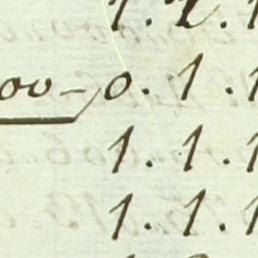 1.2.1
00-0.1.1
1.1.1
1.1.1